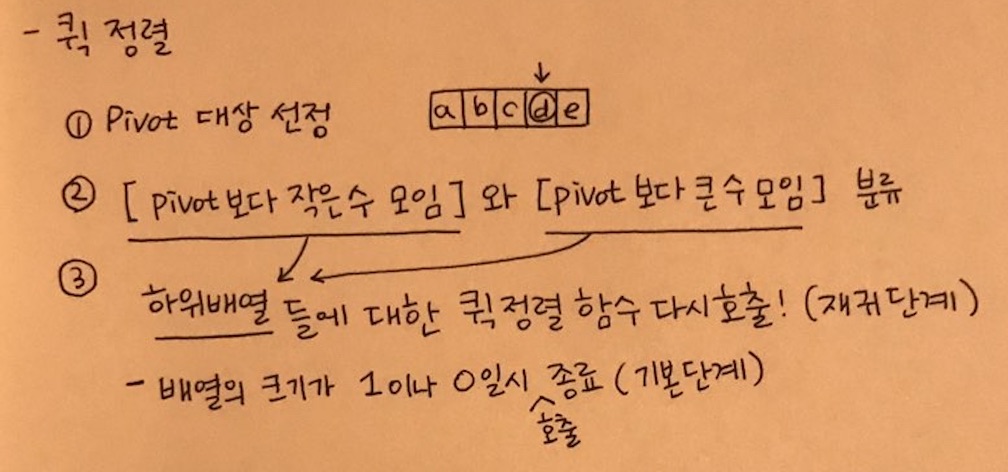 - 퀵 정렬
① Pivot 대상 선정
↓
a b c d e
② [ pivot보다 작은수 모임 ] 와 [pivot 보다 큰수 모임] 분류
③
하위배열 들에 대한 퀵정렬 함수 다시호출! (재귀단계)
- 배열의 크기가 1이나 0일시 호출 종료 (기본단계)